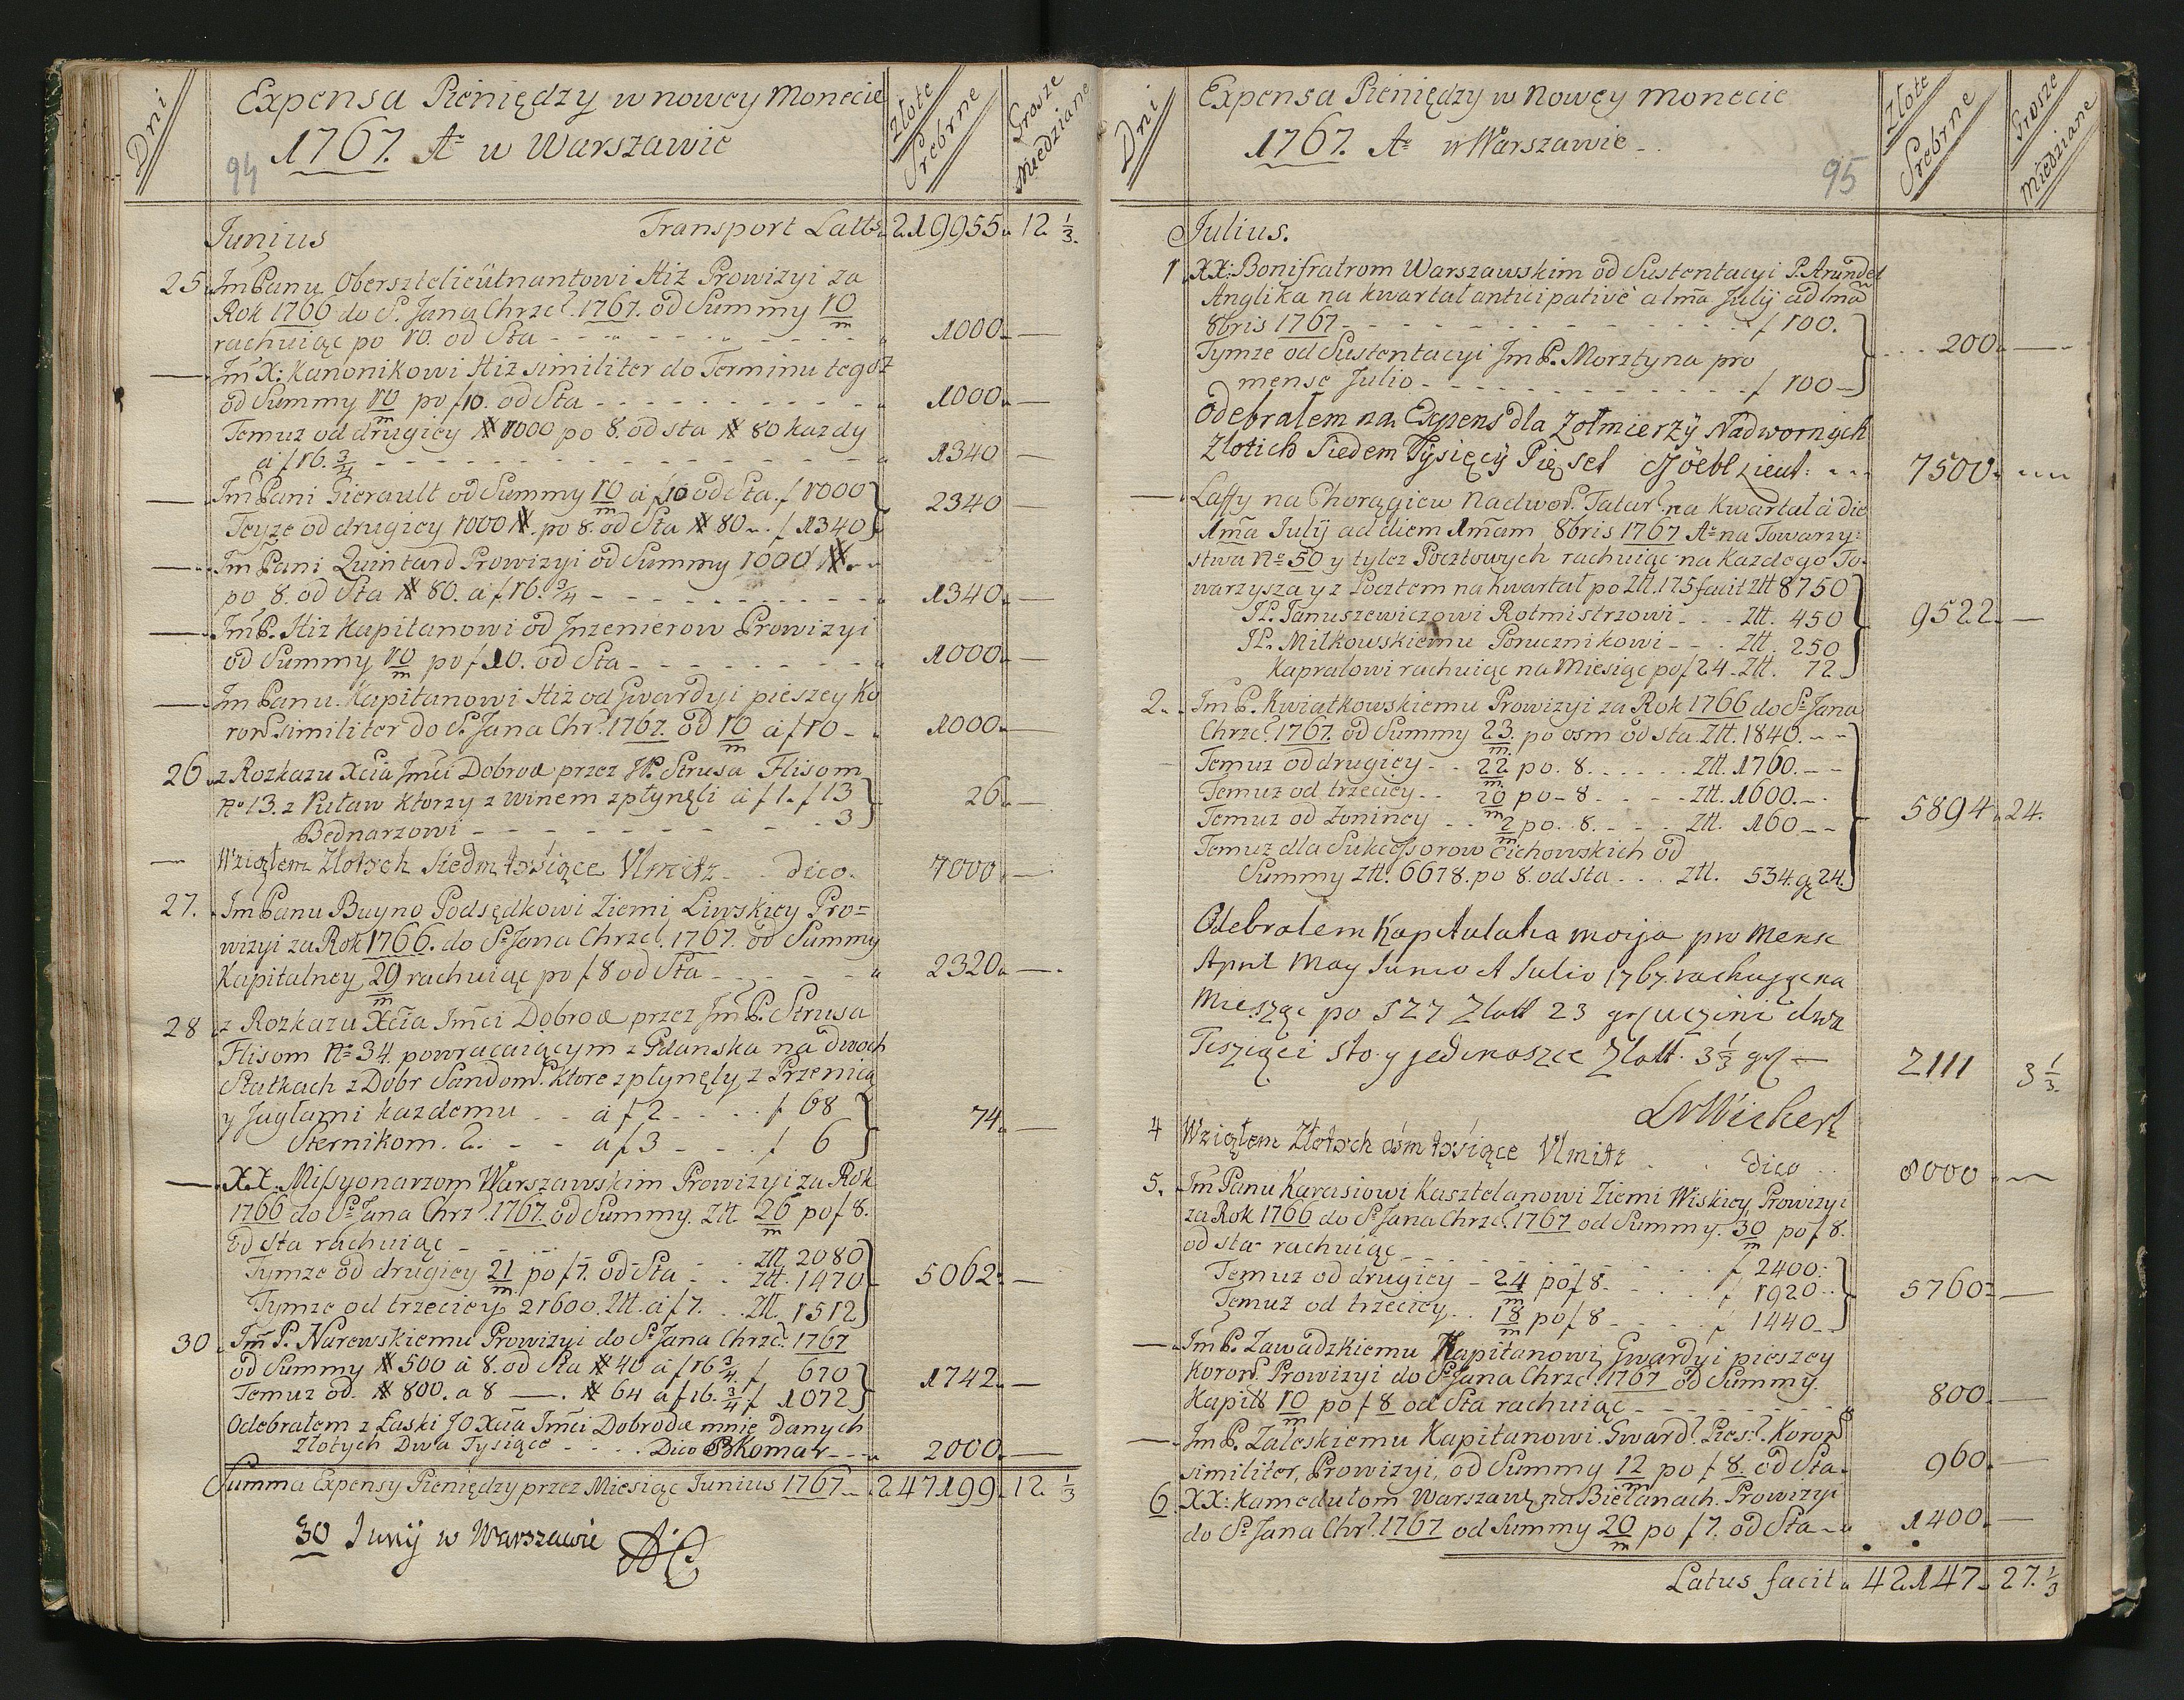 Dni
Expensa Pieniędzy w nowey Monecie
1767. Aº w Warszawie
94
Złote Srebrne
Grosze Miedziane
Junius Transport Latus 219955. 12 1/3.
25. Jm Panu Obersztelieütnantowi Hiż Prowizyi za
Rok 1766 do S. Jana Chrzc. 1767. od Summy 10/m
rachuiąc po 10. od Sta - - - 1000. —
— Jm X: Kanonikowi Hiż similiter do Terminu tegoż
od Summy 10/m po f 10. od Sta - - - 1000. —
Temuż od drugiey # 1000 po 8. od sta # 80 każdy
a f 16. 3/4 - - - 1340 —
— Jm Pani Gierault od Summy 10/m á f 10 od Sta. f 1000
Teyże od drugiey 1000 #. po 8. od Sta # 80 . f 1340 } 2340 —
— Jm Pani Quintard Prowizyi od Summy 1000 #.
po 8. od Sta # 80. á f 16. 3/4 - - - 1340. —
— Jm P. Hiż Kapitanowi od Inzenierow Prowizyi
od Summy 10/m po f 10. od Sta - - - 1000. —
— Jm Panu Kapitanowi Hiż od Gwardyi pieszey Ko
ron similiter do S. Jana Chr. 1767. od 10/m á f 10 - 1000. —
26. z Rozkazu Xcia Jmci Dobroa przez JP. Strusa Flisom
Nº 13. z Puław ktorzy z winem zpłynęli á f 1. f 13
Bednarzowi - - - 3 } 26. —
— Wziąłem Złotych siedm tysiące Vlmitz - dico. 7000. —
27. Jm Panu Buyno Podsędkowi Ziemi Liwskiey Pro=
wizyi za Rok 1766. do S. Jana Chrzc. 1767. od Summy
Kapitalney 29/m rachuiąc po f 8 od Sta - - - 2320. —
28. z Rozkazu Xcia Jmci Dobroa przez Jm P. Strusa
Flisom Nº 34. powracaiącym z Gdanska na dwoch
Statkach z Dobr Sandom. ktore zpłynęły z Przenicą
y Jagłami każdemu - - á f 2 - - f 68
Sternikom. 2. - - á f 3 - - f 6 } 74. —
— XX. Missyonarzom Warszawskim Prowizyi za Rok
1766 do S. Jana Chrz. 1767. od Summy. Złt. 26/m po f 8.
od sta rachuiąc - - - Złt. 2080
Tymże od drugiey 21/m po f 7. od Sta - - Złt. 1470
Tymże od trzeciey 21600. Złt. á f 7. - Złt. 1512 } 5062. —
30. Jm P. Narewskiemu Prowizyi do S. Jana Chrzc. 1767
od Summy # 500 á 8. od Sta # 40 á f 16 3/4. f 670
Temuż od. # 800. a 8 —. # 64 á f 16. 3/4 f 1072 } 1742. —
Odebrałem z Łaski JO Xcia Jmci Dobrode mnie danych
Złotych Dwa Tysiące - - - Dico Komar - - 2000. —
Summa Expensy Pieniędzy przez Miesiąc Junius 1767 - 247199. 12 1/3
30 Junij w Warszawie AC
Dni
Expensa Pieniędzy w Nowęy monecie
1767. Aº w Warszawie -
95
Złote Srebrne
Grosze Miedziane
Julius.
1. XX: Bonifratrom Warszawskim od Sustentacyi P. Arundel
Anglika na kwartał anticipativé a 1ma July ad 1ma
8bris 1767 - - - f 100.
Tymże od Sustentacyi Jm P. Morsztyna pro
mense Julio - - - f 100 } 200. —
Odebrałem na Expens dla Zołmierzÿ Nadwornÿch
Złotich Siedem Tÿsięcÿ Pięset Göebl Lieut: 7500.
— Laffy na Chorągiew Nadwor. Tatar. na Kwartał á die
1ma Julij ad diem 1mam 8bris 1767 Aº na Towarzy:
stwa Nº 50 y tyleż Pocztowych rachuiąc na Każdego To-
warzysza y z Pocztem na Kwartał po Złt. 175 facit Złt 8750
JP. Januszewiczowi Rotmistrzowi - - Złt. 450
JP. Miłkowskiemu Porucznikowi - - Złt. 250
Kapralowi rachuiąc na Miesiąc po f 24 - Złt. 72 } 9522. —
2. Jm P. Kwiatkowskiemu Prowizyi za Rok 1766 do S. Jana
Chrzc. 1767. od Summy 23/m. po osm od sta. Złt. 1840.
Temuż od drugiey - - 22/m. po. 8. - - - Złt. 1760.
Temuż od trzeciey - - 20/m po - 8 - - - Złt. 1600.
Temuż od Zoniney - - 2/m po. 8. - - - Złt. 160
Temuż dla Sukcessorow Cichowskich od
Summy Złt. 6678. po 8. od sta - - Złt. 534. g 24. } 5894. 24.
Odebralem Kapitulatia moija pro Mense
April May Junio et Julio 1767. rachujge na
Mieszgc po 527 Złott 23 grl uczini dwa
Tesziąci sto y jedenoszce Złott. 3 1/3 grl — 2111 3 1/3.
LvWickert
4 Wziąłem Złotych ośm tysiące Vlmitz - dico - 8000.
5. Jm Panu Karasiowi Kasztelanowi Ziemi Wiskiey Prowizyi
za Rok 1766 do S. Jana Chrzc. 1767 od Summy. 30/m po f 8.
od sta rachuiąc - - - f 2400.
Temuż od drugiey - 24/m po f 8. - - f 1920
Temuż od trzeciey - - 18/m po f 8 - - f 1440 } 5760. —
— Jm P. Zawadzkiemu Kapitanowi Gwardyi pieszey
Koron. Prowizyi do S. Jana Chrzc. 1767 od Summy.
Kapitł 10/m po f 8 od Sta rachuiąc - - - 800. —
— Jm P. Zaleskiemu Kapitanowi Gward. Pies. Koron
similiter, Prowizyi, od Summy 12/m po f 8. od Sta. 960. —
6 XX: Kamedułom Warszaw. na Bielanach. Prowizyi
do S. Jana Chr. 1767 od Summy 20/m po f 7. od Sta - 1400. —
Latus facit 42147. 27. 1/3